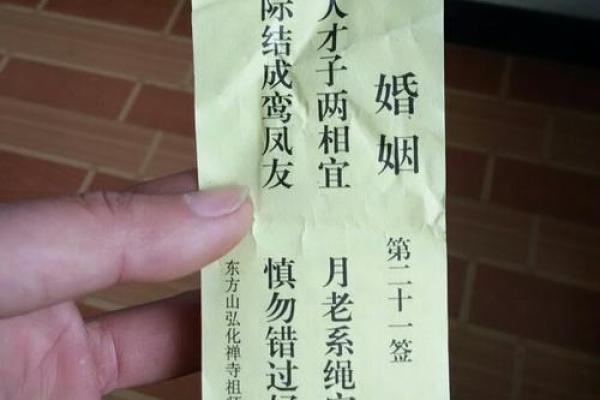 婚姻
第二十一签
人才子两相宜
月老系绳
际结成鸾凤友
慎勿错过
东方山弘化禅寺祖师